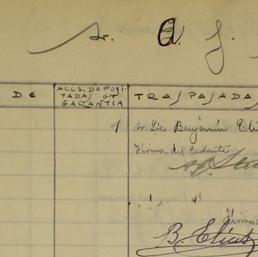 Sr. A. J.
DE
ACCS. DEPOSI-
TADAS EN
GARANTIA
TRASPASADAS
1 Sr. Lic. Benjamín Elí
Firma del Cedente
Firma
B. Elías